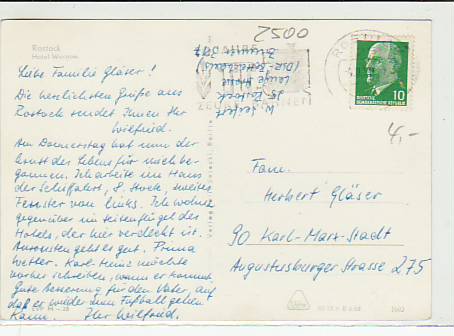 Rostock
Hotel Warnow
2500
Liebe Familie Gläser!
Die herzlichsten Grüße aus
Rostock sendet Ihnen Ihr
Wilfried.
Am Donnerstag hat nun der
Ernst des Lebens für mich be-
gonnen. Ich arbeite im Haus
der Schiffahrt, 8. Stock, zweites
Fenster von links. Ich wohne
gegenüber im Seitenflügel des
Hotels, der hier verdeckt ist.
Ansonsten geht es gut. Prima
Wetter. Karl-Heinz möchte
vorher schreiben, wann er kommt.
Gute Besserung für den Vater, auf
daß er wieder zum Fußball gehen
kann. Ihr Wilfried.
W. Seifert
25 Rostock
Lange Straße
Zimmer
DEUTSCHE
DEMOKRATISCHE REPUBLIK
10
4,-
Fam.
Herbert Gläser
90 Karl-Marx-Stadt
Augustusburger Straße 275